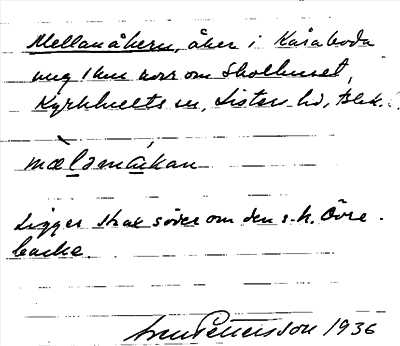 Mellanåkern, åker i Kåraboda
ung 1 km norr om Skolhuset,
Kyrkhults sn, Listers hd, Blek.
mæ̀lanǻkan
Ligger strax söder om den s.k. Övre-
backe.
Sven Pettersson 1936